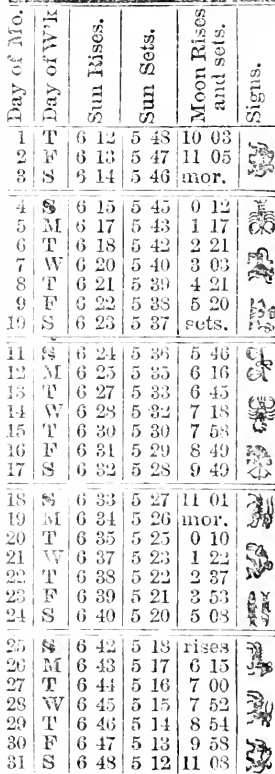 Day of Mo. Day of W'k Sun Rises. Sun Sets. Moon Rises and sets. Signs.
1 T 6 12 5 48 10 03
2 F 6 13 5 47 11 05
3 S 6 14 5 46 mor.
4 S 6 15 5 45 0 12
5 M 6 17 5 43 1 17
6 T 6 18 5 42 2 21
7 W 6 20 5 40 3 03
8 T 6 21 5 39 4 21
9 F 6 22 5 38 5 20
10 S 6 23 5 37 sets.
11 S 6 24 5 36 5 46
12 M 6 25 5 35 6 16
13 T 6 27 5 33 6 45
14 W 6 28 5 32 7 18
15 T 6 30 5 30 7 58
16 F 6 31 5 29 8 49
17 S 6 32 5 28 9 49
18 S 6 33 5 27 11 01
19 M 6 34 5 26 mor.
20 T 6 35 5 25 0 10
21 W 6 37 5 23 1 22
22 T 6 38 5 22 2 37
23 F 6 39 5 21 3 53
24 S 6 40 5 20 5 08
25 S 6 42 5 18 rises
26 M 6 43 5 17 6 15
27 T 6 44 5 16 7 00
28 W 6 45 5 15 7 52
29 T 6 46 5 14 8 54
30 F 6 47 5 13 9 58
31 S 6 48 5 12 11 08